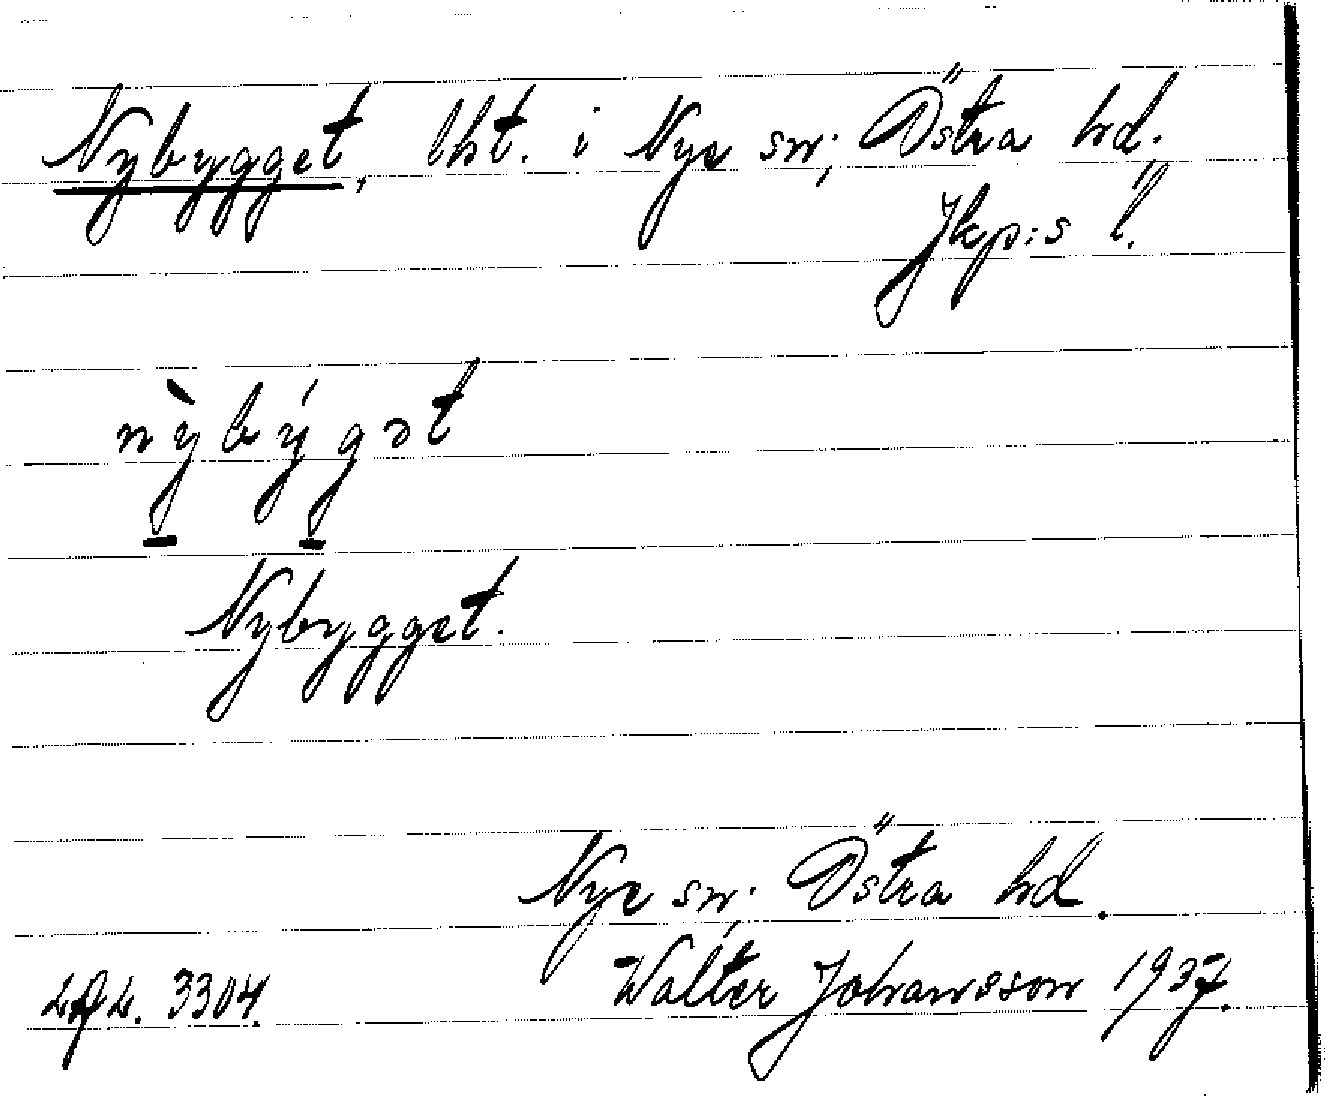 Nybygget, lht. i Nye sn; Östra hd.
Jkp:s l.
nỳbýgət
Nybygget.
Nye sn; Östra hd.
Walter Johansson 1937.
3304.